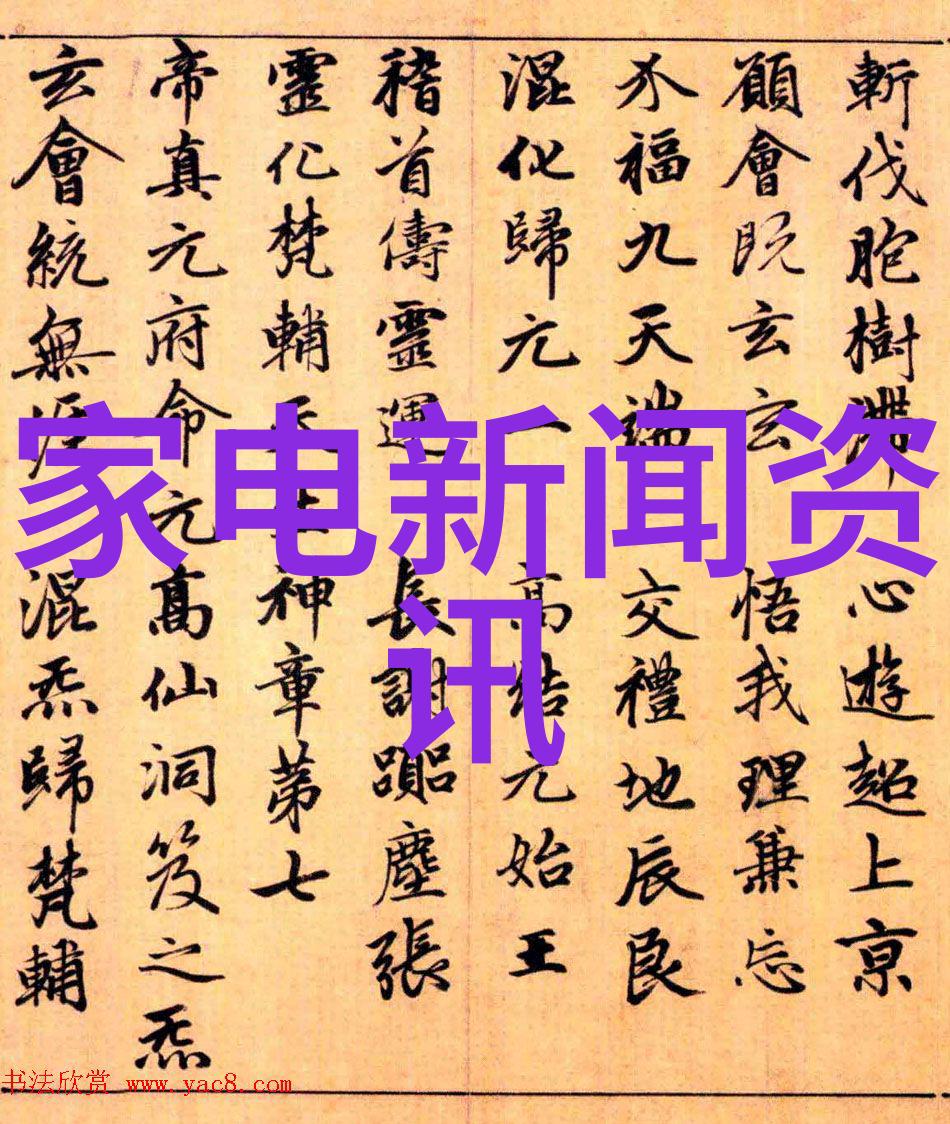 斬伐胞樹滯心遊超上京
願會既玄玄悟我理兼忘
介福九天端交禮地辰良
混化歸元一高結元始王
稽首儔靈運長謝躡塵張
靈化梵輔天生神章第七
帝真元府命元高仙洞笈之炁
玄會統無涯混炁歸梵輔
家电新闻资
讯
书法欣赏 www.yac8.com